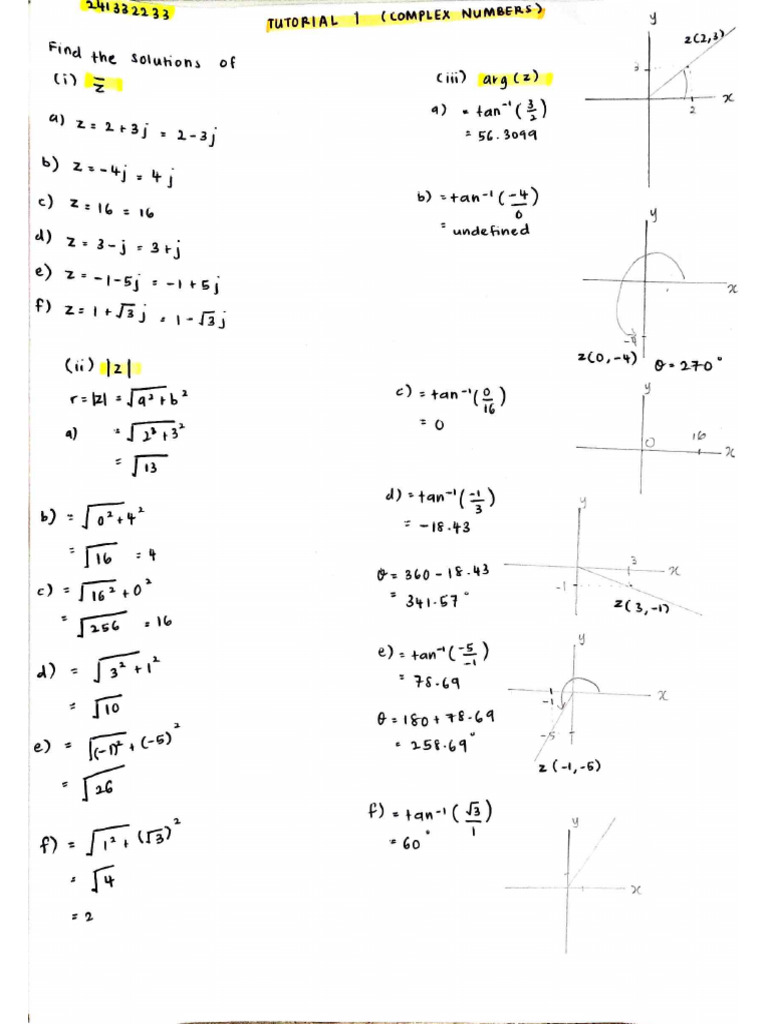 241332233
TUTORIAL 1 (COMPLEX NUMBERS)
Find the solutions of
(i) z̄
a) z = 2+3j = 2-3j
b) z = -4j = 4j
c) z = 16 = 16
d) z = 3-j = 3+j
e) z = -1-5j = -1+5j
f) z = 1+√3 j = 1-√3 j
(ii) |z|
r = |z| = √a²+b²
a) = √2²+3²
= √13
b) = √0²+4²
= √16 = 4
c) = √16²+0²
= √256 = 16
d) = √3²+1²
= √10
e) = √(-1)²+(-5)²
= √26
f) = √1²+(√3)²
= √4
= 2
(iii) arg(z)
a) = tan⁻¹(3/2)
= 56.3099
y
z(2,3)
3
x
2
b) = tan⁻¹(-4/0)
= undefined
y
x
-4
z(0,-4) θ = 270°
c) = tan⁻¹(0/16)
= 0
y
0 16
x
d) = tan⁻¹(-1/3)
= -18.43
θ = 360 - 18.43
= 341.57°
y
3
x
-1
z(3,-1)
e) = tan⁻¹(-5/-1)
= 78.69
θ = 180 + 78.69
= 258.69°
y
x
-1
-5
z(-1,-5)
f) = tan⁻¹(√3/1)
= 60°
y
x